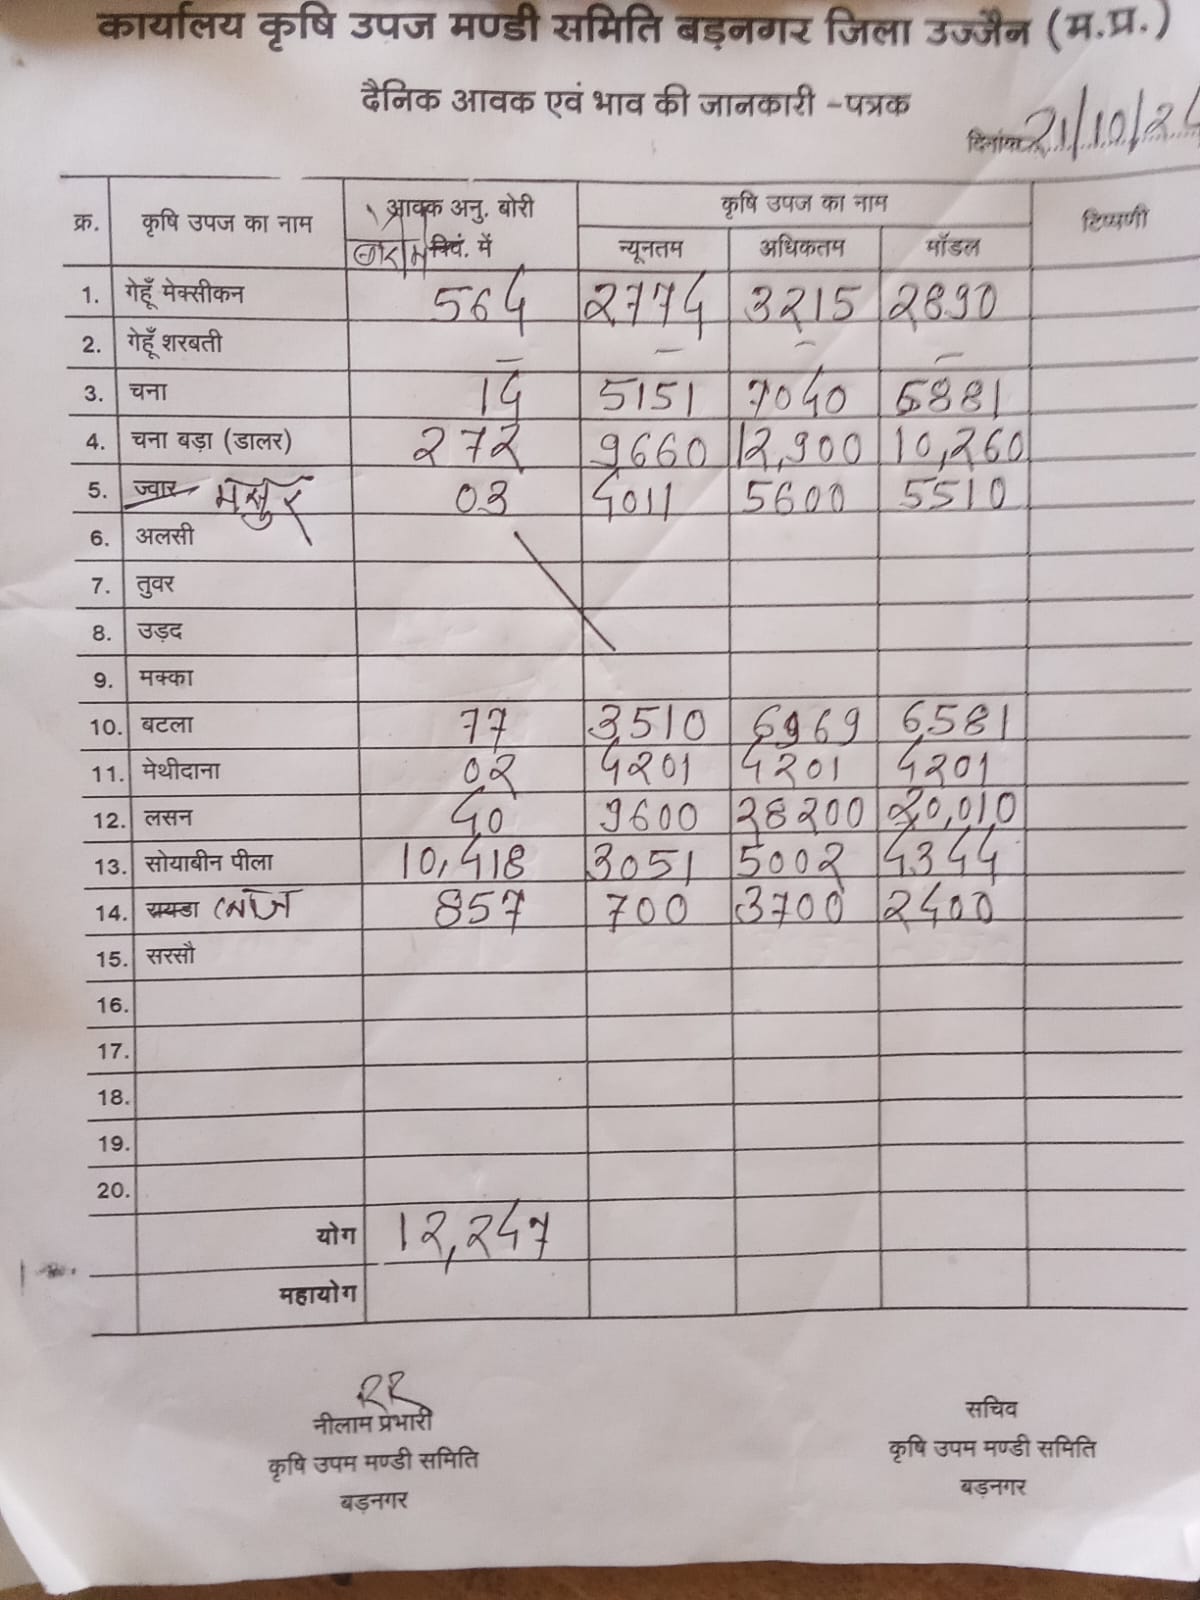 कार्यालय कृषि उपज मण्डी समिति बड़नगर जिला उज्जैन (म.प्र.)
दैनिक आवक एवं भाव की जानकारी -पत्रक
दिनांक 21/10/24
क्र. कृषि उपज का नाम आवक अनु. बोरी कृषि उपज का नाम टिप्पणी
क्विं. में न्यूनतम अधिकतम मॉडल
1. गेहूँ मेक्सीकन 564 2774 3215 2890
2. गेहूँ शरबती – – – –
3. चना 14 5151 7040 6881
4. चना बड़ा (डालर) 272 9660 12,900 10,260
5. ज्वार मसुर 03 4011 5600 5510
6. अलसी
7. तुवर
8. उड़द
9. मक्का
10. बटला 77 3510 6969 6581
11. मेथीदाना 02 4201 4201 4201
12. लसन 40 9600 28200 20,010
13. सोयाबीन पीला 10,418 3051 5002 4344
14. रायडा 857 700 3700 2400
15. सरसौ
16.
17.
18.
19.
20.
योग 12,247
महायोग
RR
नीलाम प्रभारी
कृषि उपम मण्डी समिति
बड़नगर
सचिव
कृषि उपम मण्डी समिति
बड़नगर